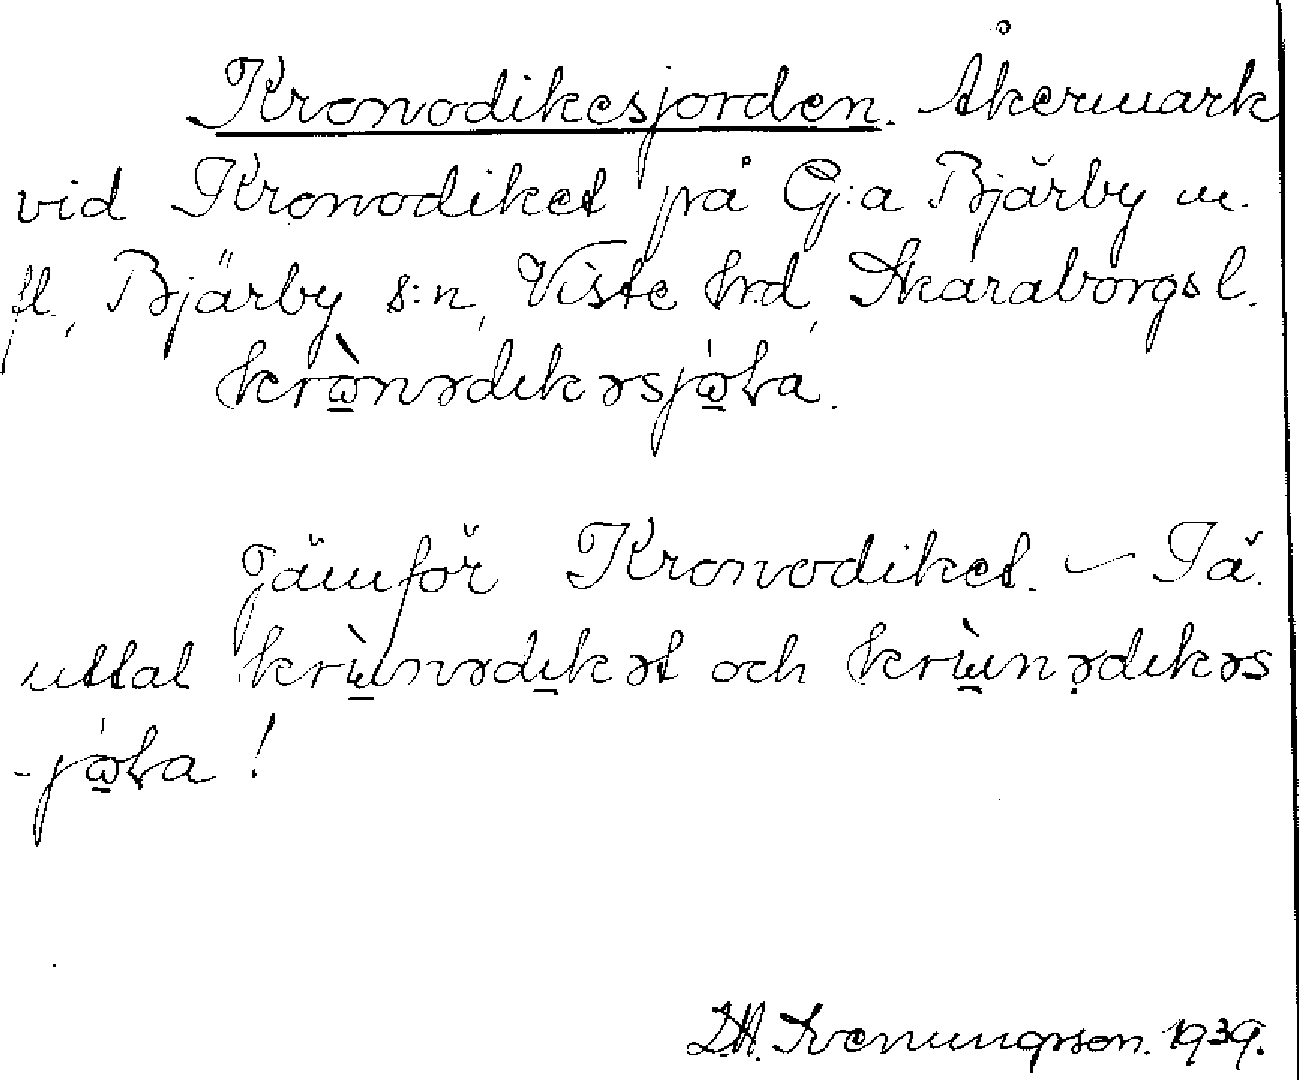 Kronodikesjorden. Åkermark
vid Kronodiket på G:a Bjärby m.
fl., Bjärby s:n, Viste hrd, Skaraborgs l.
krɷ̀nədıkəsjɷ́ɽa.
Jämför Kronodiket. – Tä.
uttal krɯ̀nədıkət och krɯ̀nədıkəs
-jɷ́ɽa!
D.A. Svenungsson. 1939.